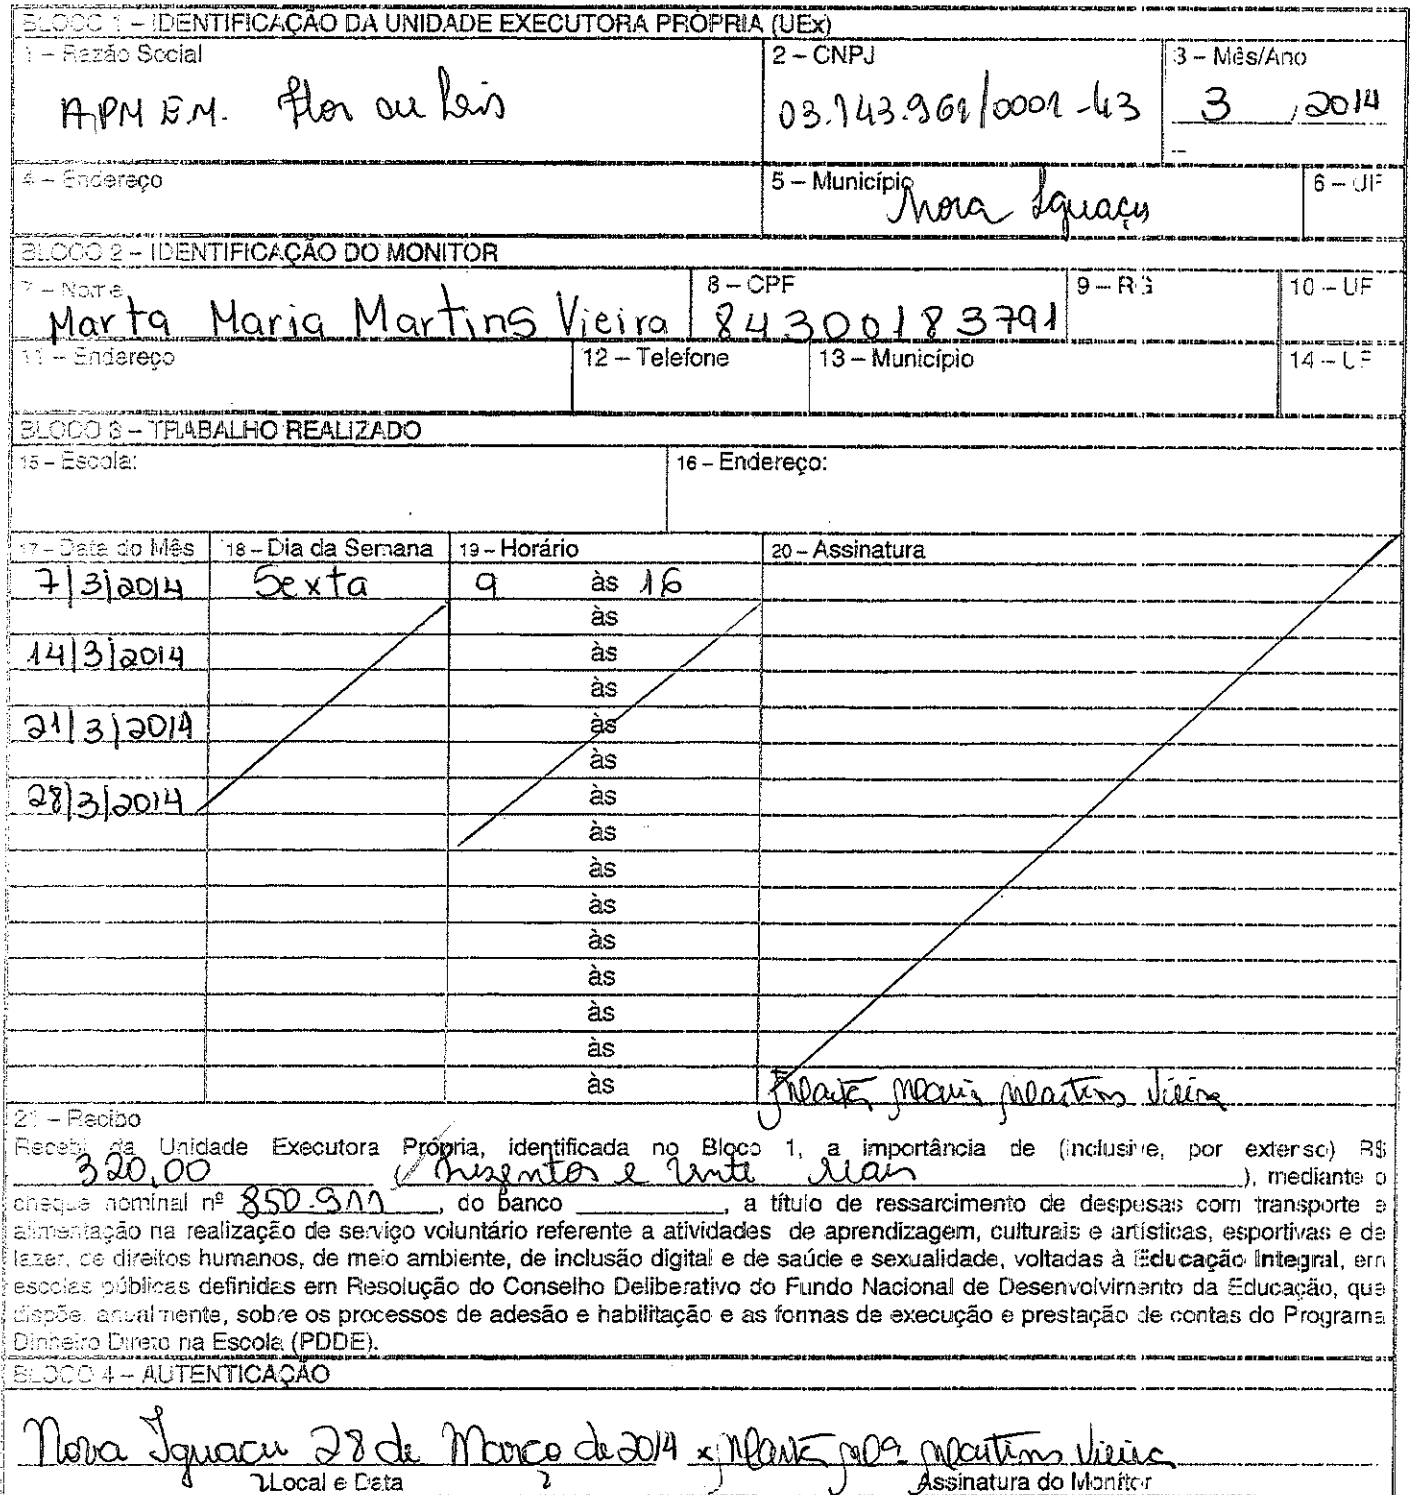 BLOCO 1 – IDENTIFICAÇÃO DA UNIDADE EXECUTORA PRÓPRIA (UEx)
1 – Razão Social 2 – CNPJ 3 – Mês/Ano
APM E.M. Flor de Lis 03.143.961/0001-43 3 / 2014
4 – Endereço 5 – Município Nova Iguaçu 6 – UF
BLOCO 2 – IDENTIFICAÇÃO DO MONITOR
7 – Nome 8 – CPF 9 – RG 10 – UF
Marta Maria Martins Vieira 84300183791
11 – Endereço 12 – Telefone 13 – Município 14 – UF
BLOCO 3 – TRABALHO REALIZADO
15 – Escola: 16 – Endereço:
17 – Data do Mês 18 – Dia da Semana 19 – Horário 20 – Assinatura
7/3/2014 Sexta 9 às 16
às
14/3/2014 às
às
21/3/2014 às
às
28/3/2014 às
às
às
às
às
às
às
às
às Marta Maria Martins Vieira
21 – Recibo
Recebi da Unidade Executora Própria, identificada no Bloco 1, a importância de (inclusive, por extenso) R$
320,00 (Trezentos e Vinte Reais), mediante o
cheque nominal nº 850.911, do banco ________, a título de ressarcimento de despesas com transporte e
alimentação na realização de serviço voluntário referente a atividades de aprendizagem, culturais e artísticas, esportivas e de
lazer, de direitos humanos, de meio ambiente, de inclusão digital e de saúde e sexualidade, voltadas à Educação Integral, em
escolas públicas definidas em Resolução do Conselho Deliberativo do Fundo Nacional de Desenvolvimento da Educação, que
dispõe, anualmente, sobre os processos de adesão e habilitação e as formas de execução e prestação de contas do Programa
Dinheiro Direto na Escola (PDDE).
BLOCO 4 – AUTENTICAÇÃO
Nova Iguaçu 28 de Março de 2014 x Marta Mª Martins Vieira
Local e Data Assinatura do Monitor